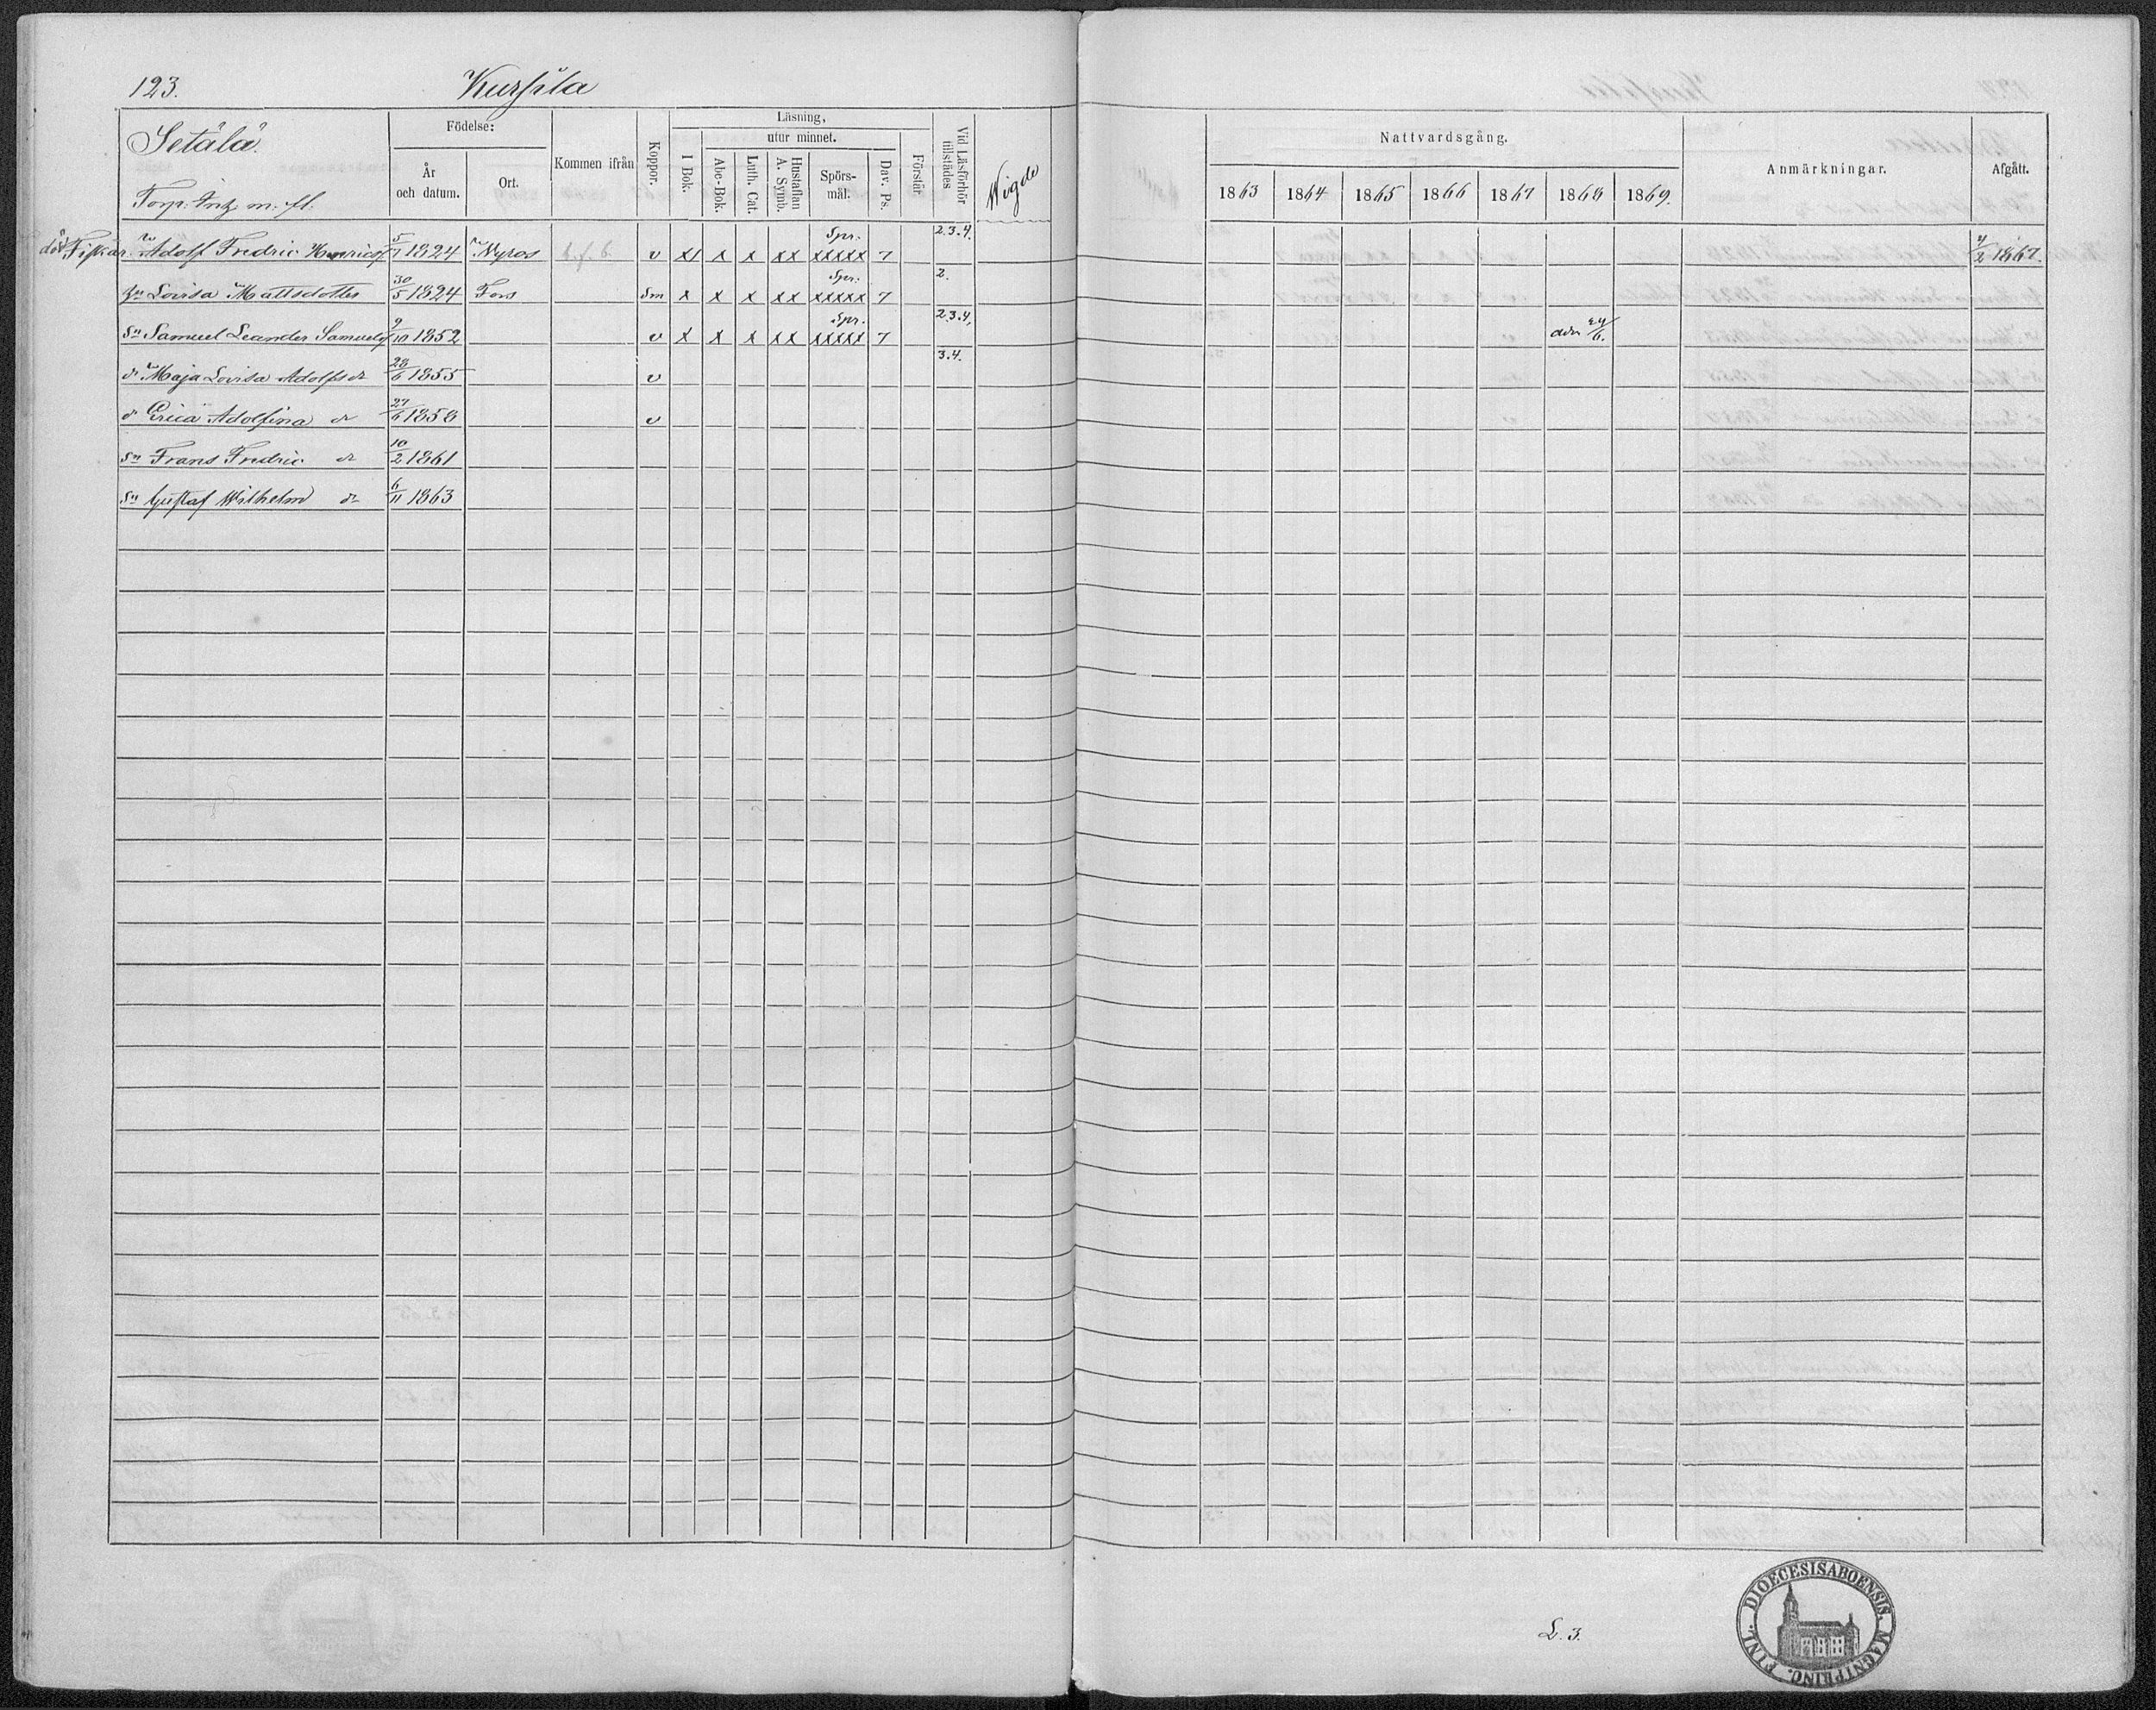 123. Kursila
Setälä.
Torp. Intz m. fl.
Födelse:
År och datum.
Ort.
Kommen ifrån
Koppor.
Läsning,
utur minnet.
I Bok.
Abc-Bok.
Luth. Cat.
Hustaflan A. Symb.
Spörs-mål.
Dav. Ps.
Förstår
Vid Läsförhör tillstädes
Wigde
Nattvardsgång.
1863 1864 1865 1866 1867 1868 1869.
Anmärkningar.
Afgått.
död Adolf Fredric Henricsf 5/7 1824 Nyros v xx x x xx Spr. xxxxx 7 2.3.4. 1867.
hu Lovisa Mattsdotter 30/5 1824 Fors Sm x x x xx Spr. xxxxx 7 2.
Sn Samuel Leander Samuelsf 9/10 1852 v x x x xx Spr. xxxxx 7 2.3.4. adm 24/6.
dr Maja Lovisa Adolfsdr 28/6 1855 v 3.4.
dr Erica Adolfina dr 27/6 1858 v
Sn Frans Fredric dr 10/2 1861
Sn Gustaf Wilhelm dr 6/11 1863
L. 3.
FINL. DIOECESIS ABOENSIS. MAGNI PRINC.